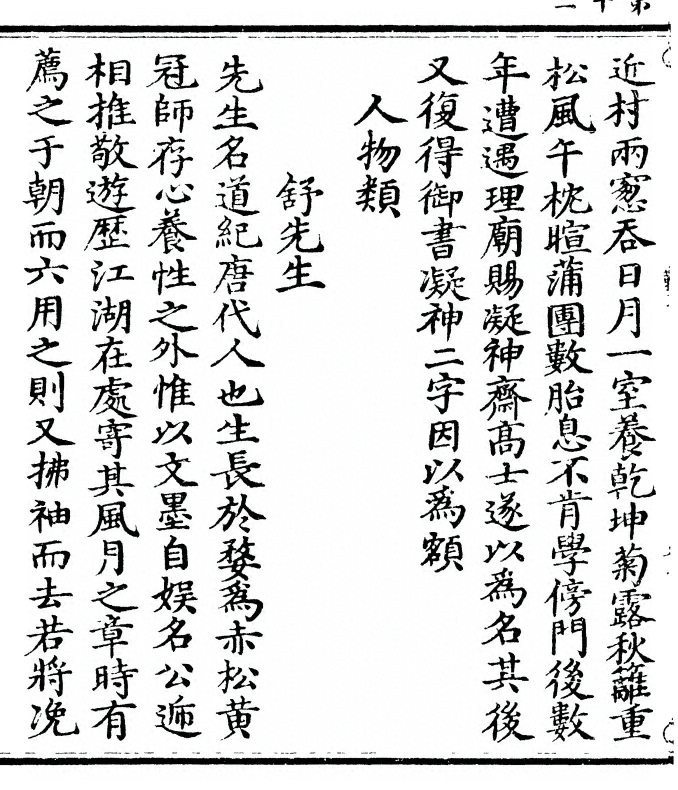 近村兩窻吞日月一室養乾坤菊露秋籬重
松風午枕暄蒲團數胎息不肯學傍門後數
年遭遇理廟賜凝神齋高士遂以為名其後
又復得御書凝神二字因以為額
人物類
舒先生
先生名道紀唐代人也生長於婺為赤松黄
冠師存心養性之外惟以文墨自娱名公遞
相推敬遊歷江湖在處寄其風月之章時有
薦之于朝而六用之則又拂袖而去若將浼